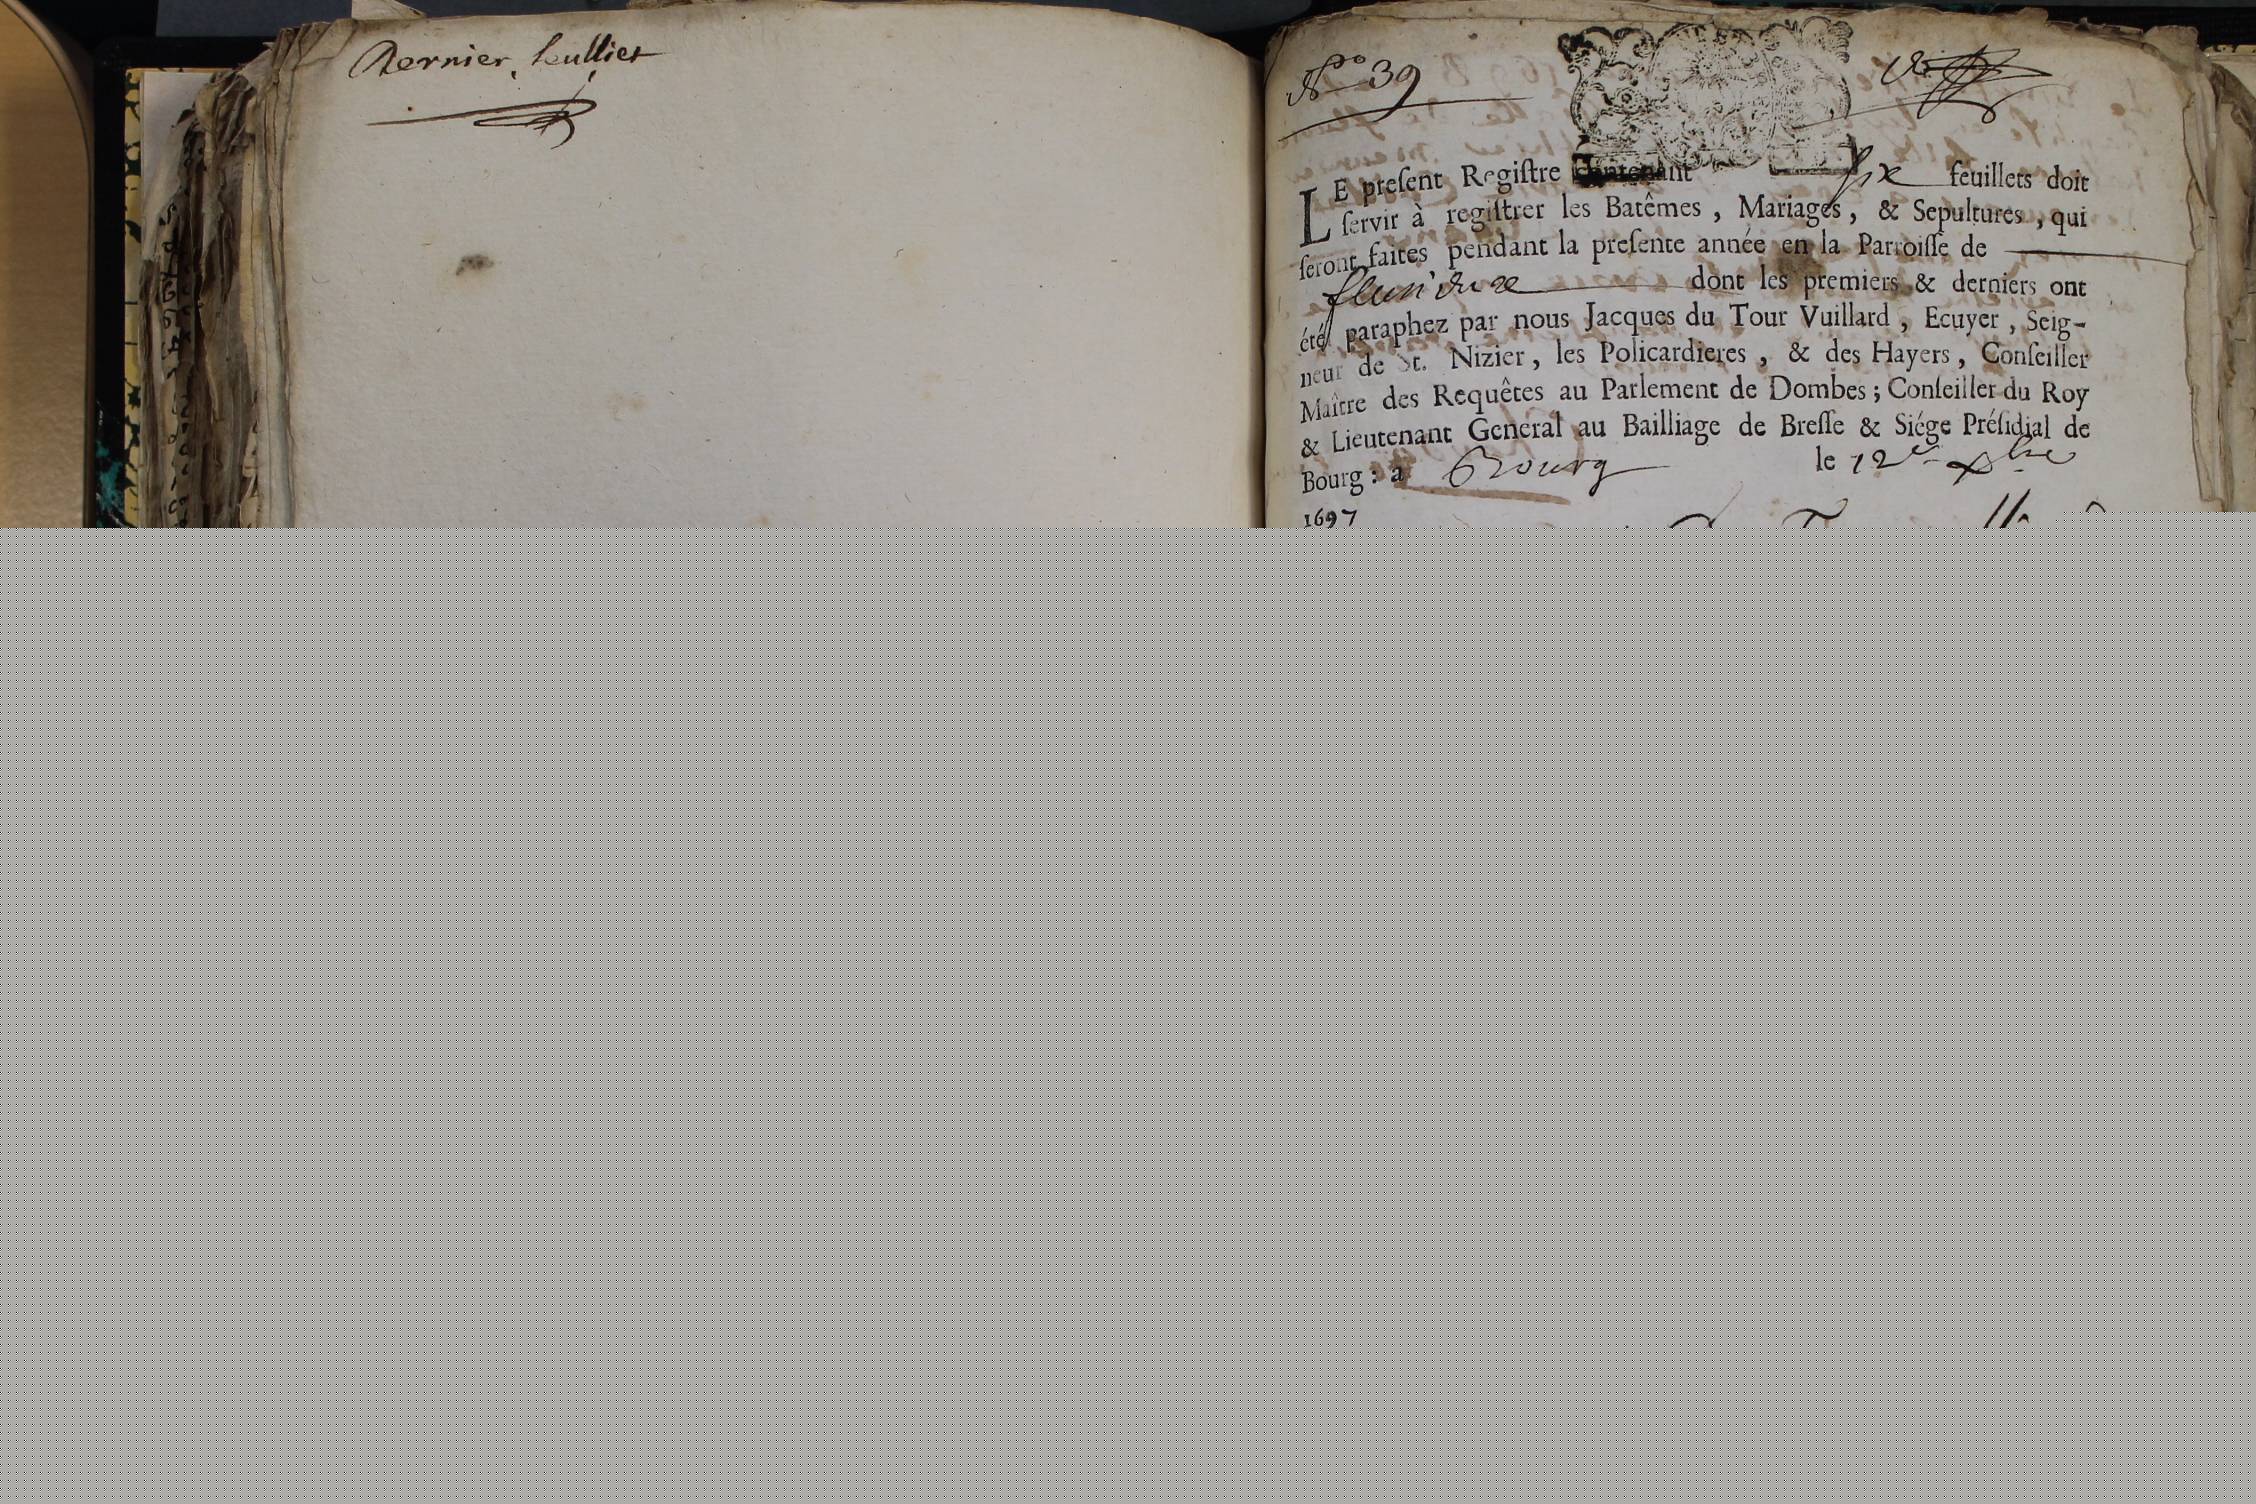 Dernier feulliet
N° 39
LE preſent Regiſtre contenant ſix feuillets doit
ſervir à regiſtrer les Batêmes, Mariages, & Sepultures, qui
ſeront faites pendant la preſente année en la Parroiſſe de
dont les premiers & derniers ont
été paraphez par nous Jacques du Tour Vuillard, Ecuyer, Seig-
neur de St. Nizier, les Policardieres, & des Hayers, Conſeiller
Maître des Requêtes au Parlement de Dombes; Conſeiller du Roy
& Lieutenant General au Bailliage de Breſſe & Siége Préſidial de
Bourg: a Bourg le 12e xbre
1697